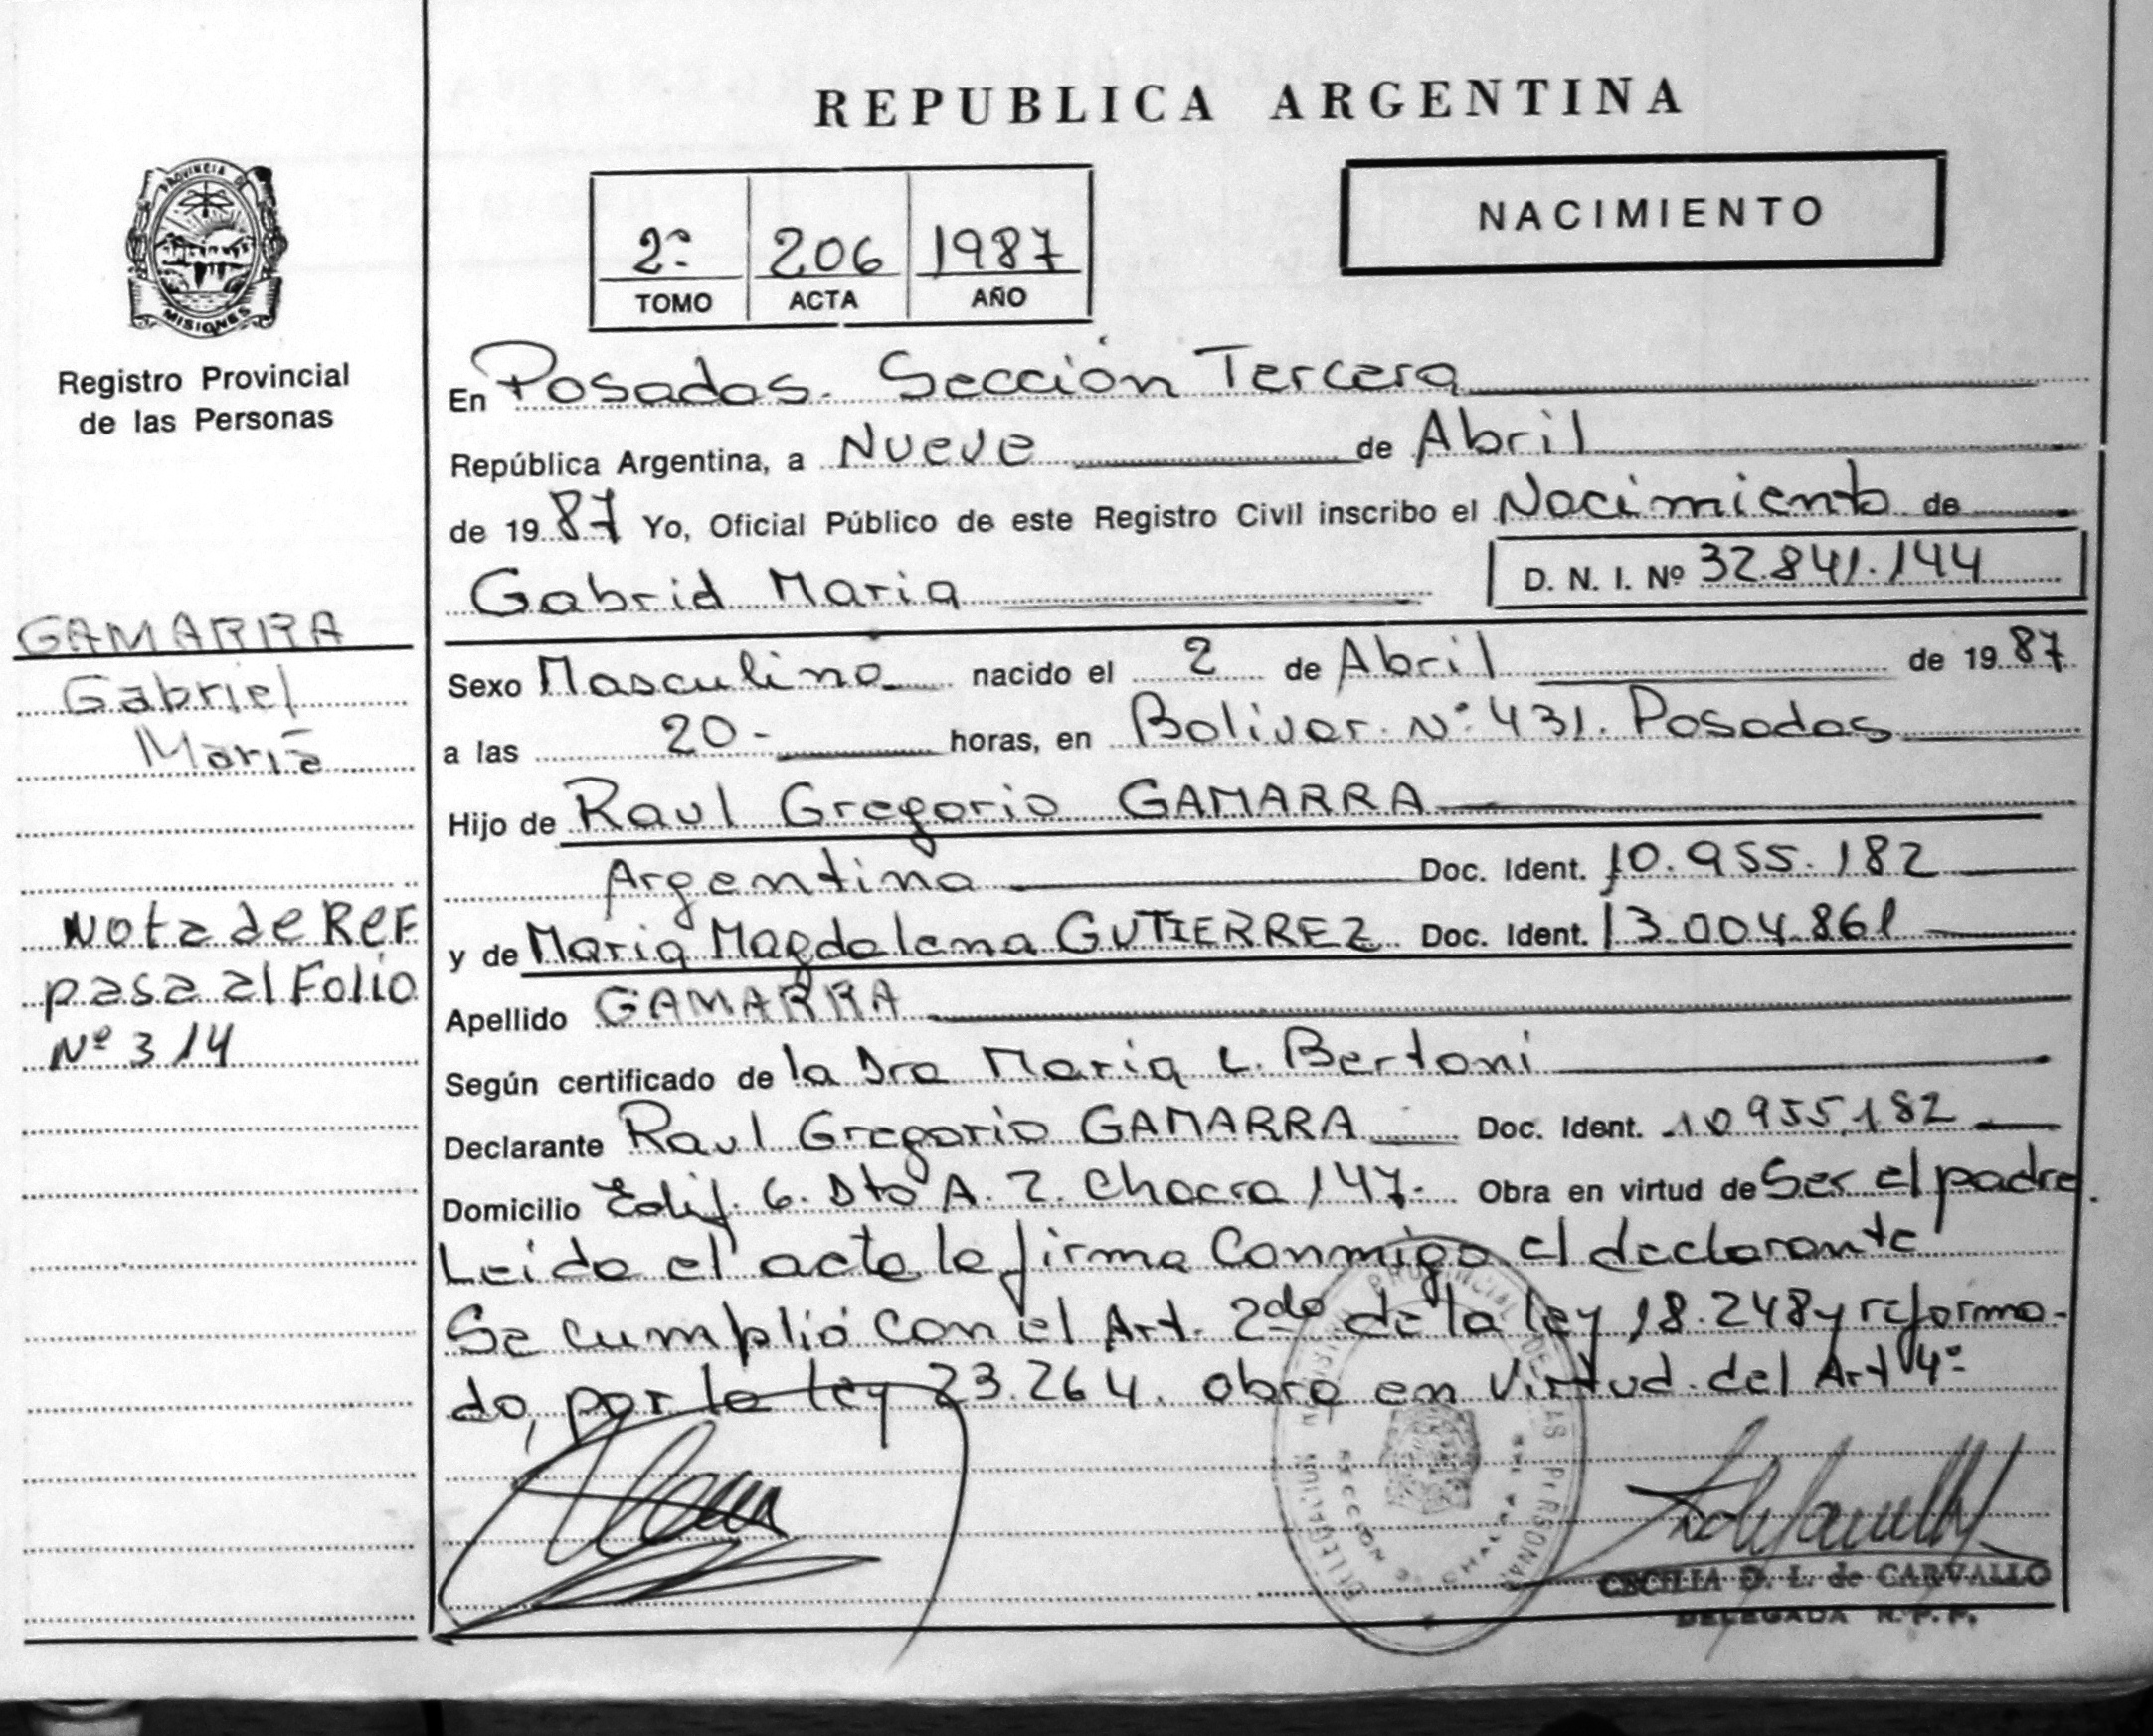 REPUBLICA ARGENTINA
PROVINCIA DE
MISIONES
Registro Provincial
de las Personas
2º 206 1987
TOMO ACTA AÑO
NACIMIENTO
En Posadas. Sección Tercera
República Argentina, a Nueve de Abril
de 1987 Yo, Oficial Público de este Registro Civil inscribo el Nacimiento de
Gabriel Maria
D. N. I. Nº 32.841.144
GAMARRA
Gabriel
María
Sexo Masculino nacido el 2 de Abril de 1987
a las 20- horas, en Bolivar Nº 431. Posadas
Hijo de Raul Gregorio GAMARRA
Argentino Doc. Ident. 10.955.182
y de Maria Magdalena GUTIERREZ Doc. Ident. 13.004.861
Nota de Ref
pasa al Folio
Nº 314
Apellido GAMARRA
Según certificado de la Dra Maria L. Bertoni
Declarante Raul Gregorio GAMARRA Doc. Ident. 10955.182
Domicilio Edif. 6. Dto A. 2. Chacra 147. Obra en virtud de Ser el padre.
Leida el acta la firma Conmigo el declarante
Se cumplió con el Art. 2do de la ley 18.248 y reforma-
do, por la ley 23.264. obra en Virtud del Art 4º
PROVINCIAL DE LAS PERSONAS
CECILIA D. L. de CARVALLO
DELEGADA R.P.P.